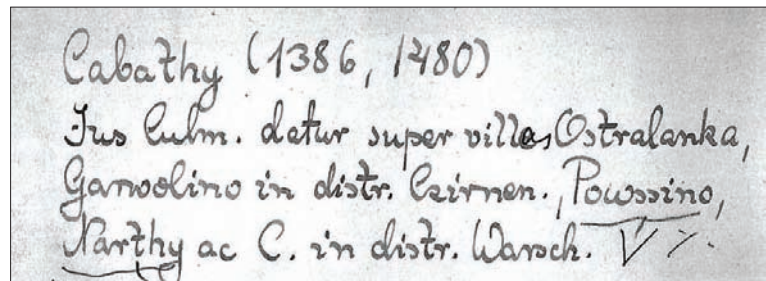 Cabathy (1386, 1480)
Jus Culm. datur super villas Ostralanka,
Garwolino in distr. Czirnen., Powssino,
Narthy ac C. in distr. Warsch.